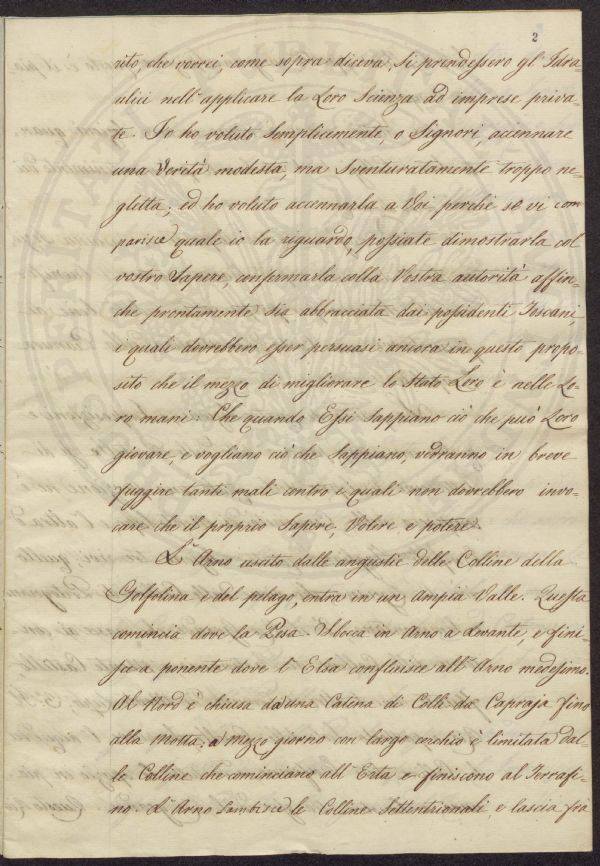 2
vito, che vorrei, come sopra diceva, si prendessero gl' Idra=
ulici nell' applicare la Loro Scienza ad imprese priva=
te. Io ho voluto Semplicemente, o Signori, accennare
una Verità modesta, ma Sventuratamente troppo ne=
gletta; ed ho voluto accennarla a Voi perchè se vi com
parisce quale io la riguardo, possiate dimostrarla col
vostro Sapere, confermarla colla Vostra autorità affin=
che prontamente sia abbracciata dai possidenti Toscani,
i quali dovrebbero esser persuasi ancora in questo propo=
sito che il mezzo di migliorare lo Stato Loro è nelle Lo=
ro mani: Che quando Essi Sappiano ciò che può Loro
giovare, e vogliano ciò che Sappiano, vedranno in breve
fuggire tanti mali contro i quali non dovrebbero invo=
care che il proprio Sapere, Volere, e potere.
L' Arno uscito dalle angustie delle Colline della
Golfolina e del pelago, entra in un Ampia Valle. Questa
comincia dove la Pesa. Sbocca in Arno a Levante, e fini=
sce a ponente dove l' Elsa confluisce all' Arno medesimo.
Al Nord è chiusa da una Catena di Colli da Capraja fino
alla Motta; a Mezzo giorno con largo cerchio è limitata dal=
le Colline che cominciano all' Erta e finiscono al Terrafi=
no. L' Arno Lambisce le Colline Settentrionali, e lascia fra